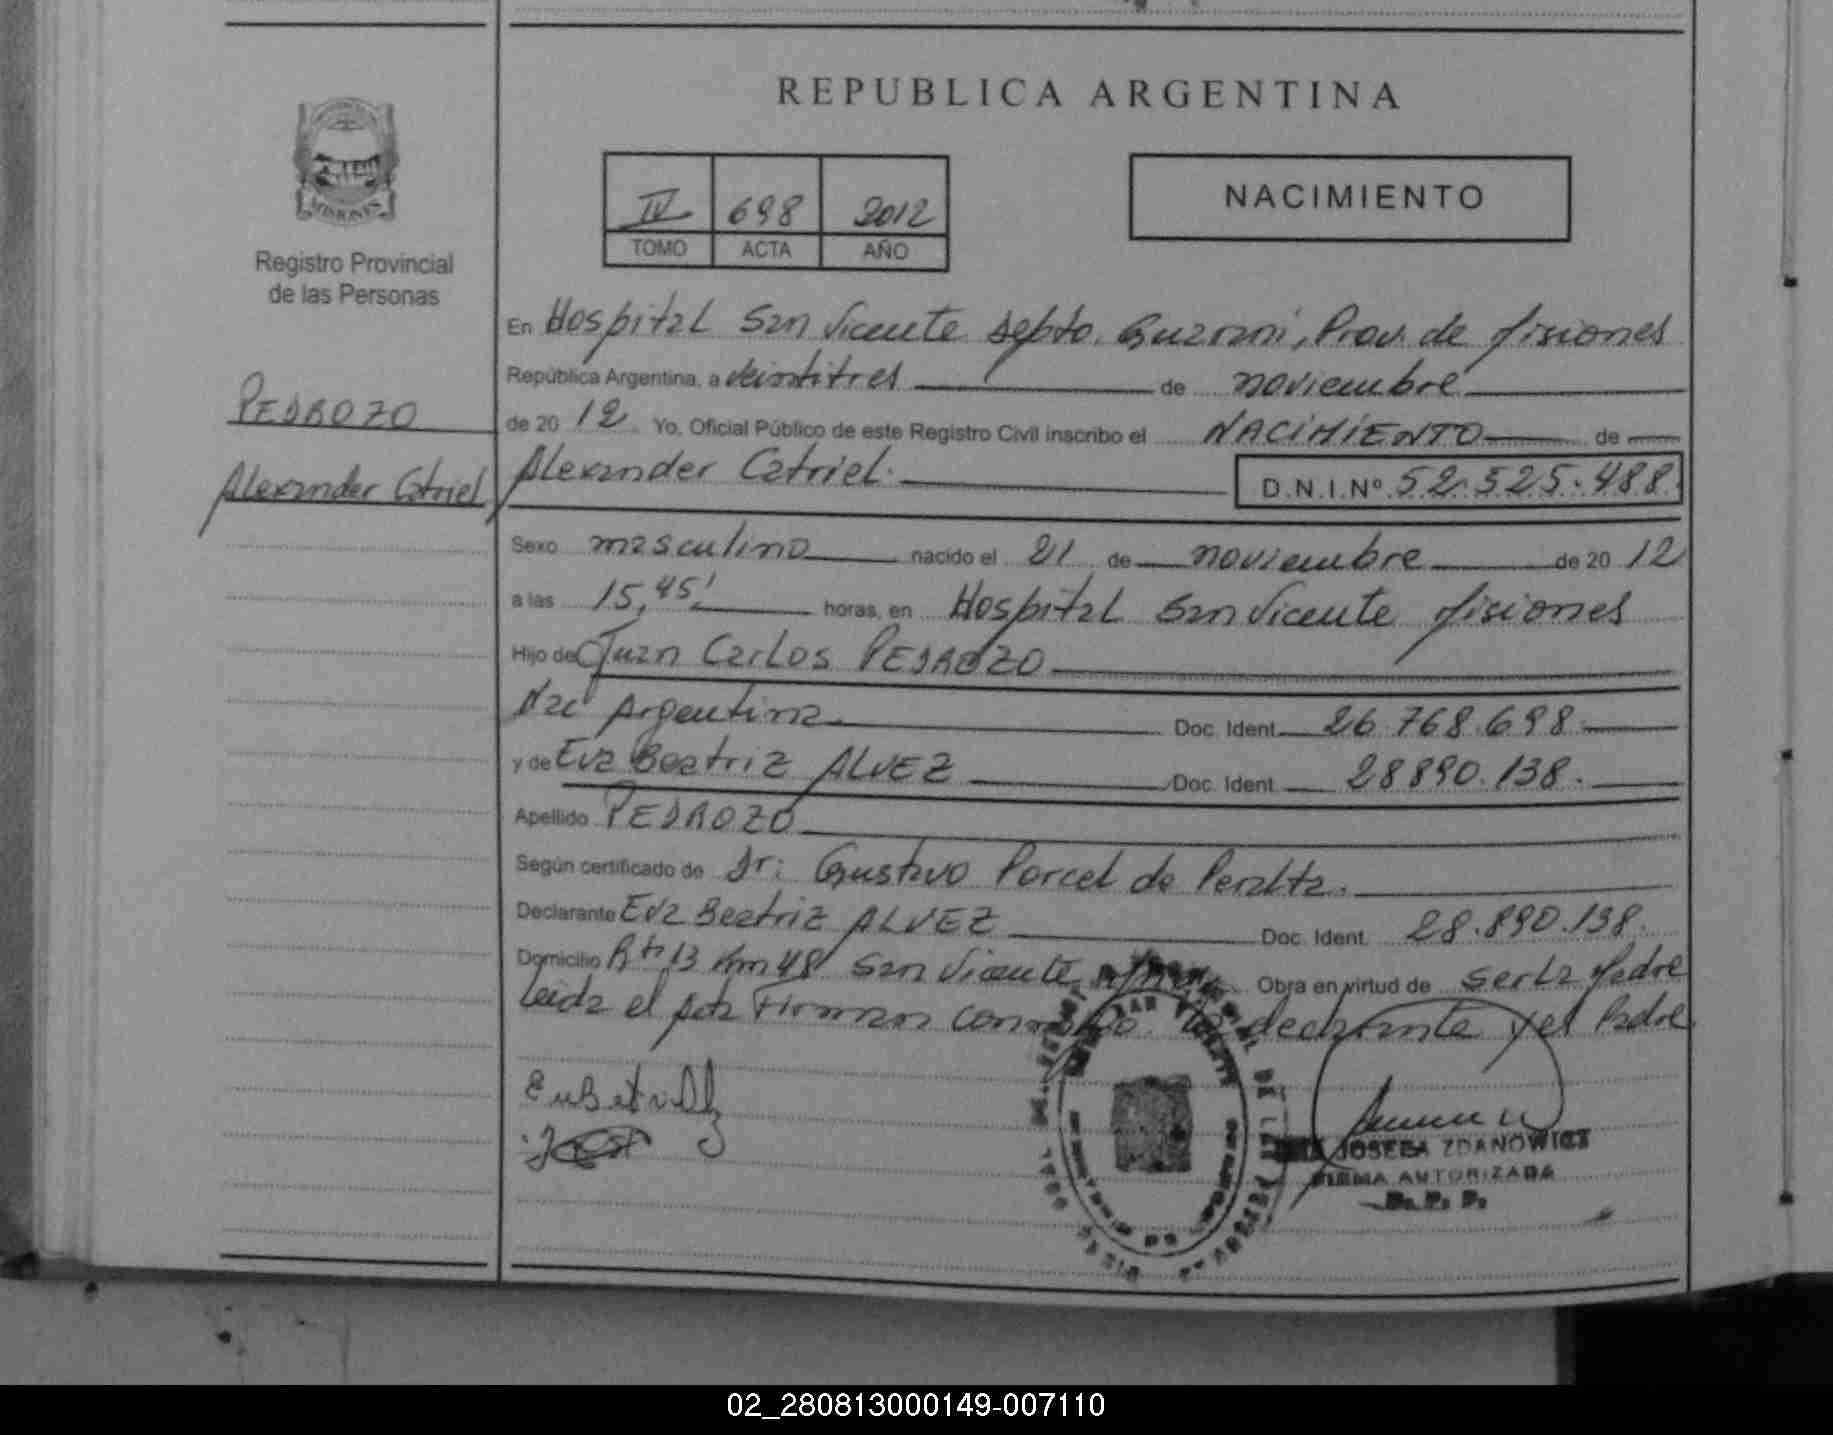 REPUBLICA ARGENTINA
MISIONES
Registro Provincial
de las Personas
IV 698 2012
TOMO ACTA AÑO
NACIMIENTO
PEDROZO
Alexander Catriel
En Hospital San Vicente Depto. Guarani, Prov. de Misiones
República Argentina, a veintitres de noviembre
de 20 12 Yo, Oficial Público de este Registro Civil inscribo el NACIMIENTO de
Alexander Catriel. D.N.I.Nº 52.525.488.
Sexo masculino nacido el 21 de noviembre de 20 12
a las 15,45' horas, en Hospital San Vicente Misiones
Hijo de Juan Carlos PEDROZO
Nac Argentina. Doc. Ident. 26.768.698.
y de Eva Beatriz ALVEZ Doc. Ident. 28890.138.
Apellido PEDROZO
Según certificado de Dr: Gustavo Porcel de Peralta.
Declarante Eva Beatriz ALVEZ Doc. Ident. 28.890.138.
Domicilio Rta 13 Km 48 San Vicente Obra en virtud de ser la Madre
Leida el Acta Firman conmigo la declarante y el Padre
JOSEFA ZDANOWICZ
FIRMA AUTORIZADA
R. P. P.
02_280813000149-007110